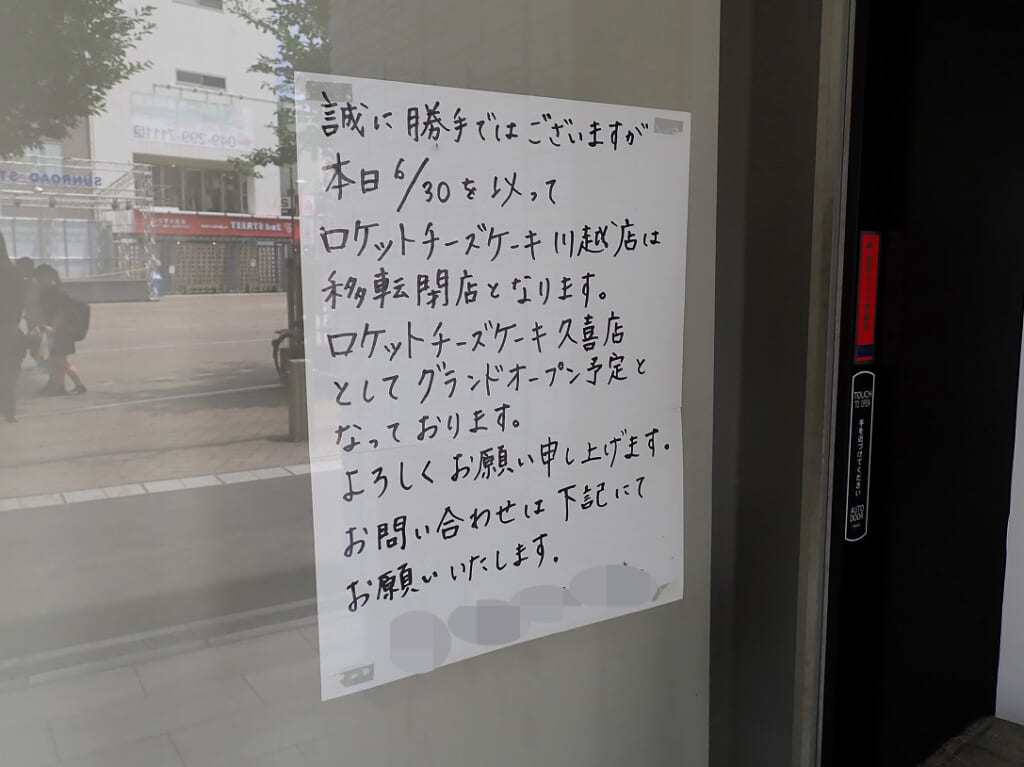 誠に勝手ではございますが
本日6/30を以って
ロケットチーズケーキ川越店は
移転閉店となります。
ロケットチーズケーキ久喜店
としてグランドオープン予定と
なっております。
よろしくお願い申し上げます。
お問い合わせは下記にて
お願いいたします。
049-299-7111
SUNROAD ST
2nd STREET
TOUCH
TO OPEN
手を近づけてください
AUTO
DOOR